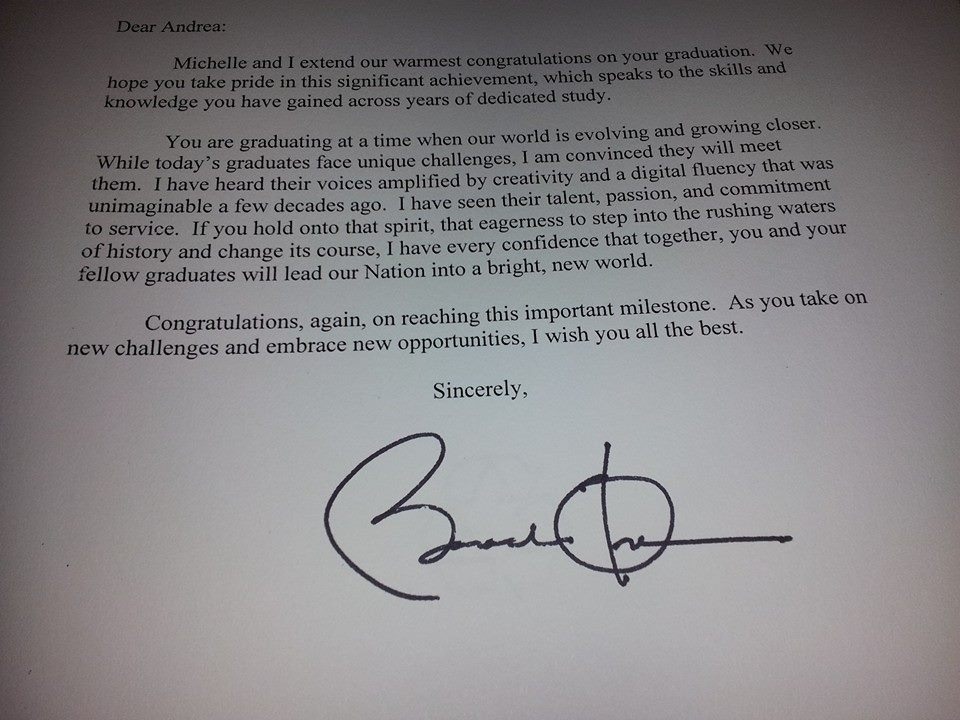 Dear Andrea:
Michelle and I extend our warmest congratulations on your graduation. We
hope you take pride in this significant achievement, which speaks to the skills and
knowledge you have gained across years of dedicated study.
You are graduating at a time when our world is evolving and growing closer.
While today's graduates face unique challenges, I am convinced they will meet
them. I have heard their voices amplified by creativity and a digital fluency that was
unimaginable a few decades ago. I have seen their talent, passion, and commitment
to service. If you hold onto that spirit, that eagerness to step into the rushing waters
of history and change its course, I have every confidence that together, you and your
fellow graduates will lead our Nation into a bright, new world.
Congratulations, again, on reaching this important milestone. As you take on
new challenges and embrace new opportunities, I wish you all the best.
Sincerely,
Barack